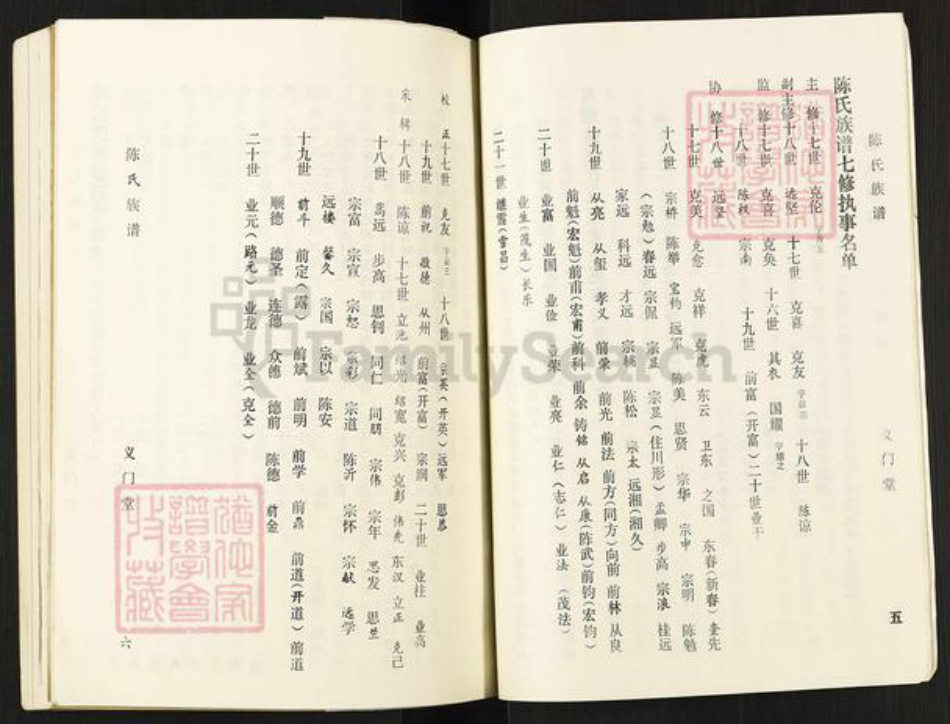 陈氏族谱
义门堂
五
陈氏族谱七修执事名单
主修十七世 克伦
副主修十八世 远坚 十七世 克喜 克友 十八世 陈谅
监修十七世 克喜 克奂 十六世 其 国耀
十八世 陈权 宗南 十九世 前富(开富)二十世业干
协修十八世 远坚
十七世 克美 克念 克祥 克虎 东云 卫东 之国 东春(新春)奎先
十八世 宗桥 陈举 宝钧 远军 陈美 思贤 宗华 宗申 宗明 陈勉
(宗勉)春远 宗保 宗显 宗显(住川形)孟卿 步高 宗浪 桂远
家远 科远 才远 宗铙 陈松 宗太 远湘(湘久)
十九世 从亮 从玺 孝义 前荣 前光 前法 前方(同方)向前 前林 从良
前魁(宏魁)前甫(宏甫)前科 前余 铸铭 从启 从康(陈武)前钧(宏钧)
二十世 业富 业国 业俭 业荣 业亮 业仁(志仁) 业法 (茂法)
业生(茂生)长乐
二十一世 继雪(雪昌)
校正十七世 克友 十八世 宗英(开英)远军 恩恭
十九世 前祝 敬德 从州 前富(开富) 宗润 二十世 业柱 业高
采辑十八世 陈谅 十七世 立池 绍光 绍宽 克兴 克彭 伟先 东汉 立正 克己
十八世 高远 步高 思钶 同仁 同朋 宗伟 宗年 思发 思兰
宗富 宗宣 宗恕 宗彩 宗道 陈沂 宗怀 宗献 远学
远楼 馨久 宗国 宗以 陈安
十九世 前斗 前定(露) 前斌 前明 前学 前鼎 前道(开道)前道
顺德 德圣 连德 众德 德前 陈德 前金
二十世 业元(路元)业龙 业全(克全)
陈氏族谱
义门堂
六
FamilySearch